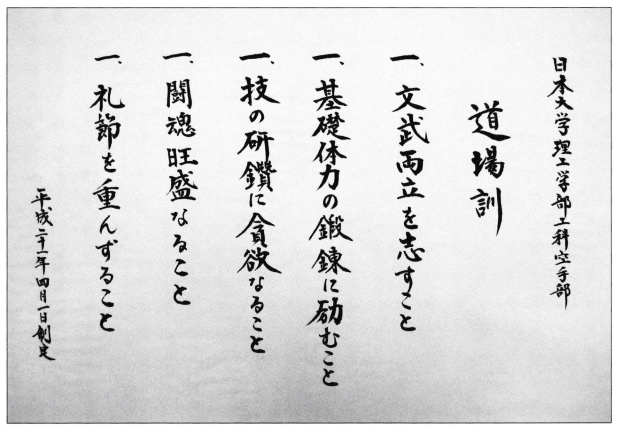 日本大学理工学部工科空手部
道場訓
一、文武両立を志すこと
一、基礎体力の鍛錬に励むこと
一、技の研鑽に貪欲なること
一、闘魂旺盛なること
一、礼節を重んずること
平成二十一年四月一日制定